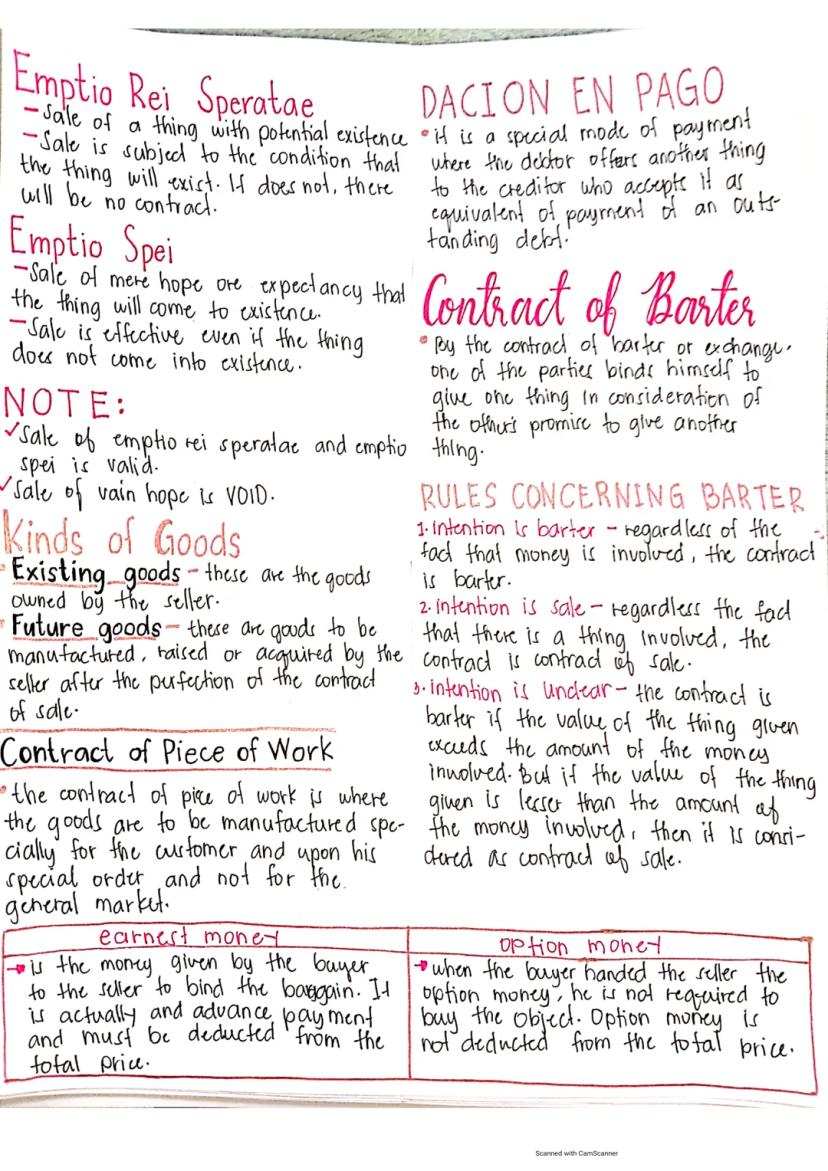 Emptio Rei Speratae
- Sale of a thing with potential existence
- Sale is subject to the condition that
the thing will exist. If does not, there
will be no contract.
Emptio Spei
- Sale of mere hope ore expectancy that
the thing will come to existence.
- Sale is effective even if the thing
does not come into existence.
NOTE:
✓ Sale of emptio rei speratae and emptio
spei is valid.
✓ Sale of vain hope is VOID.
Kinds of Goods
• Existing goods - these are the goods
owned by the seller.
• Future goods - these are goods to be
manufactured, raised or acquired by the
seller after the perfection of the contract
of sale.
Contract of Piece of Work
• the contract of pice of work is where
the goods are to be manufactured spe-
cially for the customer and upon his
special order and not for the
general market.
DACION EN PAGO
• it is a special mode of payment
where the debtor offers another thing
to the creditor who accepts it as
equivalent of payment of an outs-
tanding debt.
Contract of Barter
• By the contract of barter or exchange,
one of the parties binds himself to
give one thing in consideration of
the other's promise to give another
thing.
RULES CONCERNING BARTER
1. Intention is barter - regardless of the
fact that money is involved, the contract
is barter.
2. Intention is sale - regardless the fact
that there is a thing involved, the
contract is contract of sale.
3. Intention is unclear - the contract is
barter if the value of the thing given
exceeds the amount of the money
involved. But if the value of the thing
given is lesser than the amount of
the money involved, then it is consi-
dered as contract of sale.
earnest money
→ is the money given by the buyer
to the seller to bind the bargain. It
is actually and advance payment
and must be deducted from the
total price.
option money
→ when the buyer handed the seller the
option money, he is not required to
buy the object. Option money is
not deducted from the total price.
Scanned with CamScanner